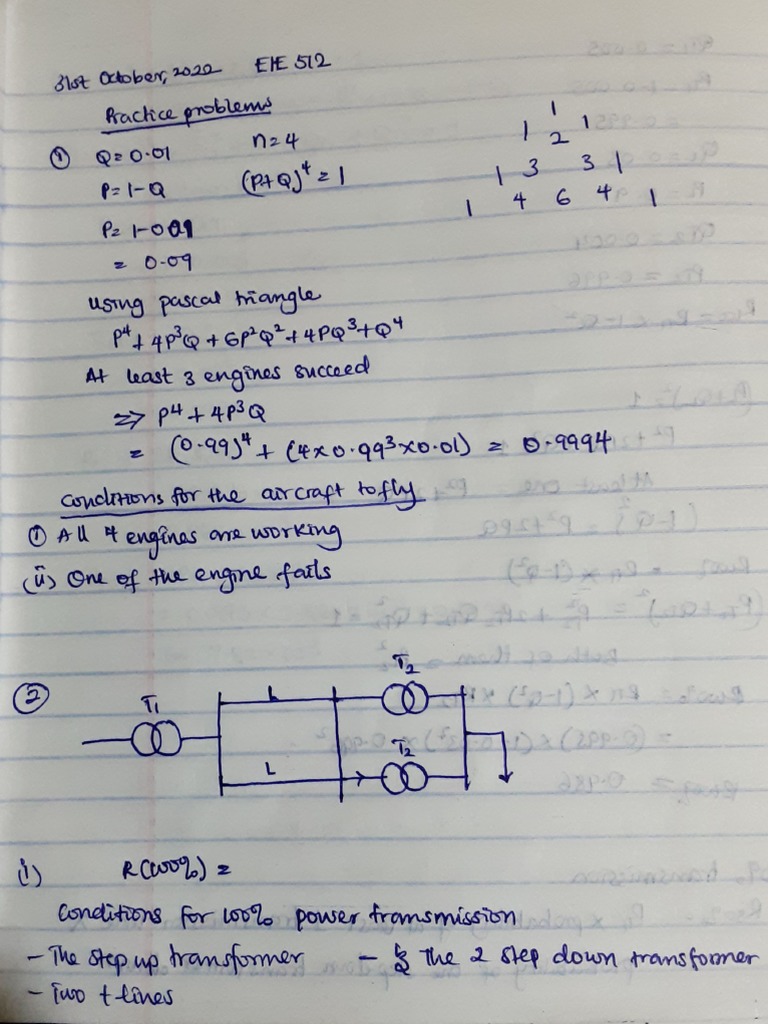 31st October, 2022 EIE 512
Practice problems
① Q = 0.01 n = 4
P = 1-Q (P+Q)⁴ = 1
P = 1-0.01
= 0.09
1
1 2 1
1 3 3 1
1 4 6 4 1
using pascal triangle
P⁴ + 4P³Q + 6P²Q² + 4PQ³ + Q⁴
At least 3 engines succeed
=> P⁴ + 4P³Q
= (0.99)⁴ + (4×0.99³×0.01) = 0.9994
Conditions for the aircraft to fly
① All 4 engines are working
(ii) One of the engine fails
②
T₁ L T₂
L T₂
(i) R(100%) =
Conditions for 100% power transmission
- The step up transformer - the 2 step down transformer
- Two t lines